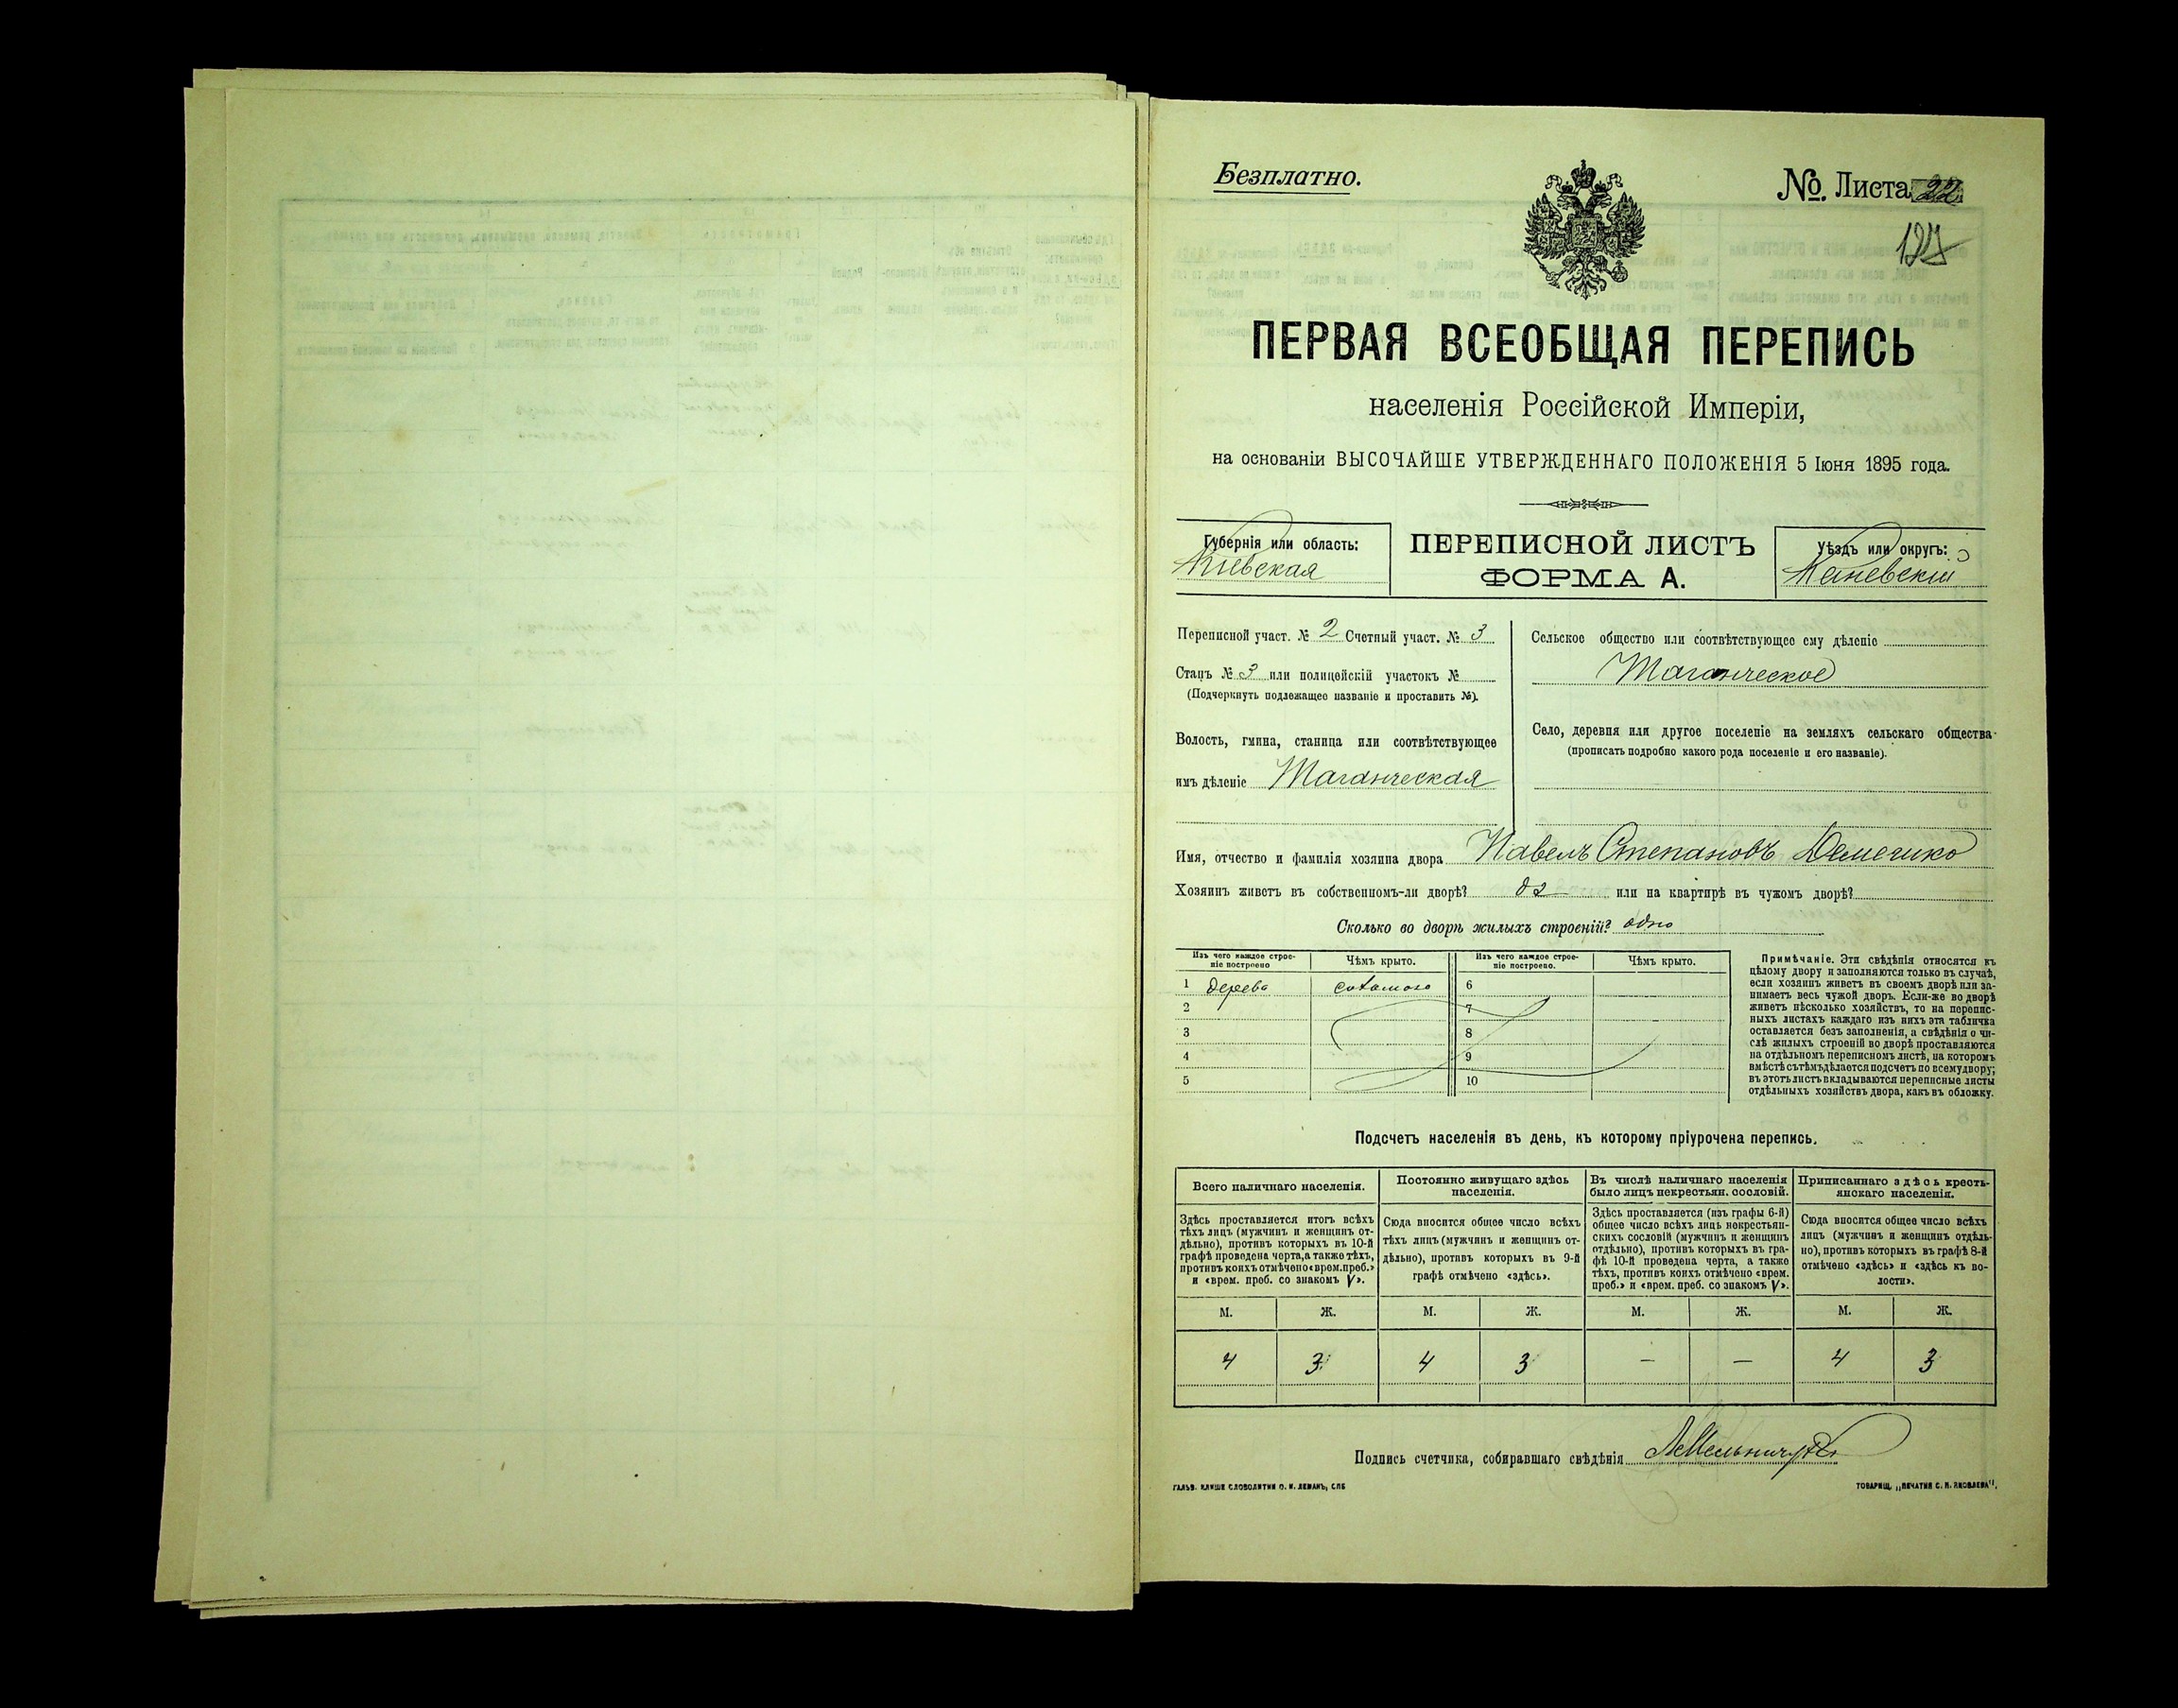 Безплатно.
№. Листа 22
127
ПЕРВАЯ ВСЕОБЩАЯ ПЕРЕПИСЬ
населенія Россійской Имперіи,
на основаніи ВЫСОЧАЙШЕ УТВЕРЖДЕННАГО ПОЛОЖЕНІЯ 5 Іюня 1895 года.
Губернія или область:
Кіевская
ПЕРЕПИСНОЙ ЛИСТЪ
ФОРМА А.
Уѣздъ или округъ:
Каневскій
Переписной участ. № 2 Счетный участ. № 3
Станъ № 3 или полицейскій участокъ №
(Подчеркнуть подлежащее названіе и проставить №).
Волость, гмина, станица или соотвѣтствующее
имъ дѣленіе Таганческая
Сельское общество или соотвѣтствующее ему дѣленіе
Таганческое
Село, деревня или другое поселеніе на земляхъ сельскаго общества
(прописать подробно какого рода поселеніе и его названіе).
Имя, отчество и фамилія хозяина двора Павелъ Степановъ
Хозяинъ живетъ въ собственномъ-ли дворѣ? да или на квартирѣ въ чужомъ дворѣ?
Сколько во дворѣ жилыхъ строеній? одно
Изъ чего каждое строе-
ніе построено
Чѣмъ крыто.
Изъ чего каждое строе-
ніе построено.
Чѣмъ крыто.
1 дерева соломою 6
2 7
3 8
4 9
5 10
Примѣчаніе. Эти свѣдѣнія относятся къ
цѣлому двору и заполняются только въ случаѣ,
если хозяинъ живетъ въ своемъ дворѣ или за-
нимаетъ весь чужой дворъ. Если-же во дворѣ
живетъ нѣсколько хозяйствъ, то на перепис-
ныхъ листахъ каждаго изъ нихъ эта табличка
оставляется безъ заполненія, а свѣдѣнія о чи-
слѣ жилыхъ строеній во дворѣ проставляются
на отдѣльномъ переписномъ листѣ, на которомъ
вмѣстѣ съ тѣмъ дѣлается подсчетъ по всему двору;
въ этотъ листъ вкладываются переписные листы
отдѣльныхъ хозяйствъ двора, какъ въ обложку.
Подсчетъ населенія въ день, къ которому пріурочена перепись.
Всего наличнаго населенія.
Здѣсь проставляется итогъ всѣхъ
тѣхъ лицъ (мужчинъ и женщинъ от-
дѣльно), противъ которыхъ въ 10-й
графѣ проведена черта, а также тѣхъ,
противъ коихъ отмѣчено «врем. преб.»
и «врем. преб. со знакомъ V».
Постоянно живущаго здѣсь
населенія.
Сюда вносится общее число всѣхъ
тѣхъ лицъ (мужчинъ и женщинъ от-
дѣльно), противъ которыхъ въ 9-й
графѣ отмѣчено «здѣсь».
Въ числѣ наличнаго населенія
было лицъ некрестьян. сословій.
Здѣсь проставляется (изъ графы 6-й)
общее число всѣхъ лицъ некрестьян-
скихъ сословій (мужчинъ и женщинъ
отдѣльно), противъ которыхъ въ гра-
фѣ 10-й проведена черта, а также
тѣхъ, противъ коихъ отмѣчено «врем.
преб.» и «врем. преб. со знакомъ V».
Приписаннаго здѣсь кресть-
янскаго населенія.
Сюда вносится общее число всѣхъ
лицъ (мужчинъ и женщинъ отдѣль-
но), противъ которыхъ въ графѣ 8-й
отмѣчено «здѣсь» и «здѣсь къ во-
лости».
М. Ж. М. Ж. М. Ж. М. Ж.
4 3 4 3 — — 4 3
Подпись счетчика, собиравшаго свѣдѣнія
ГАЛЬВ. КЛИШЕ СЛОВОЛИТНИ О. И. ЛЕМАНЪ, СПБ
ТОВАРИЩ. „ПЕЧАТНЯ С. П. ЯКОВЛЕВА".